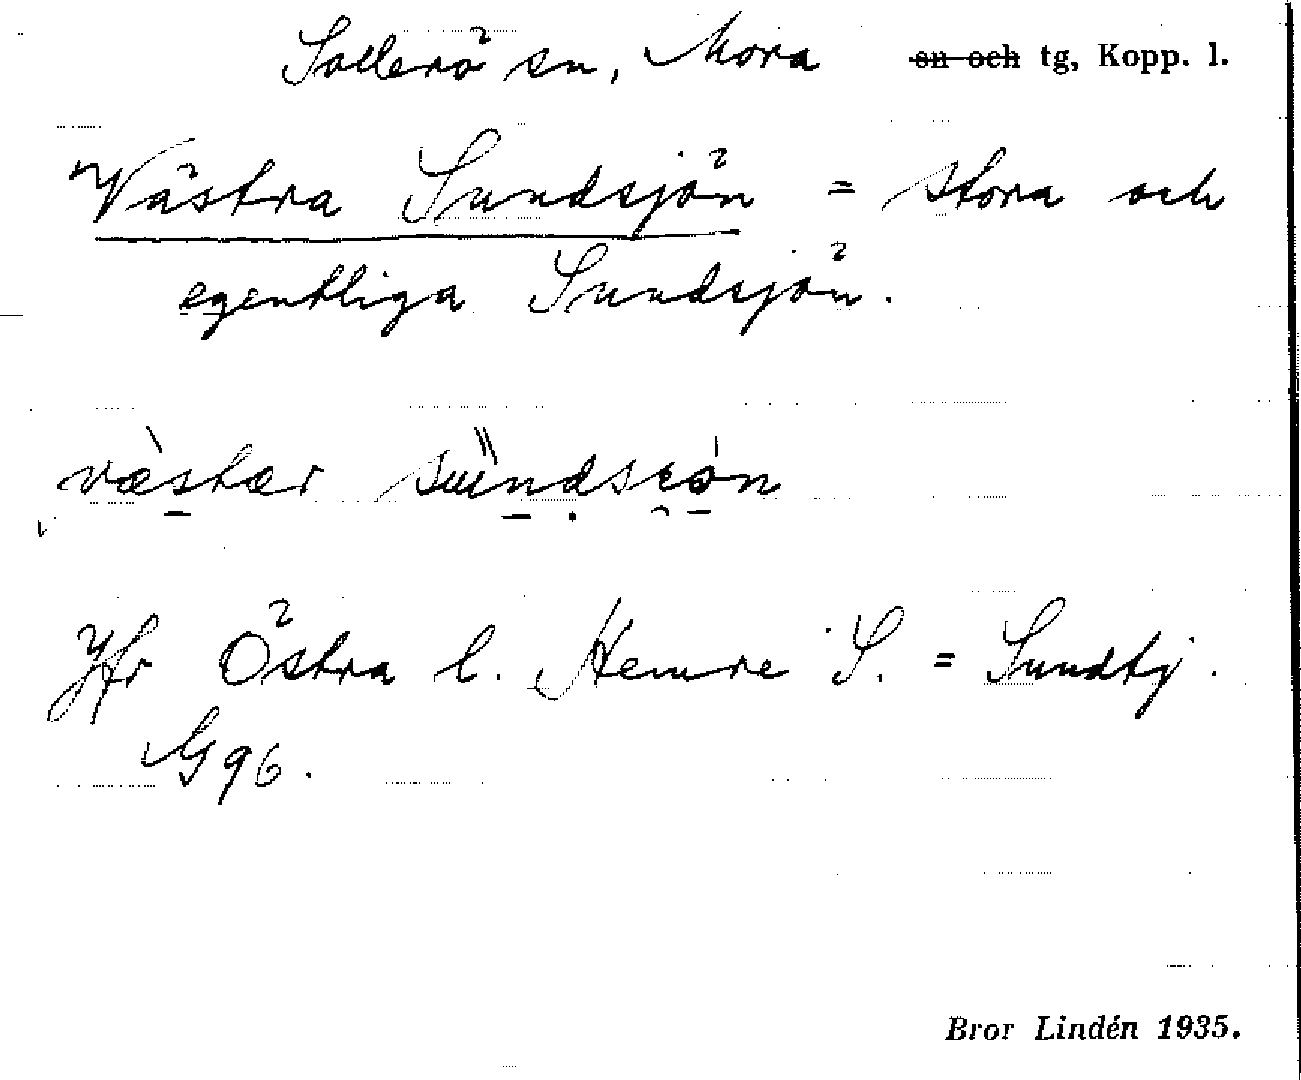 Sollerö sn, Mora sn och tg, Kopp. l.
Västra Sundsjön = stora och
egentliga Sundsjön.
Jfr Östra l. Hemre S. = Sundtj.
G 96.
Bror Lindén 1935.